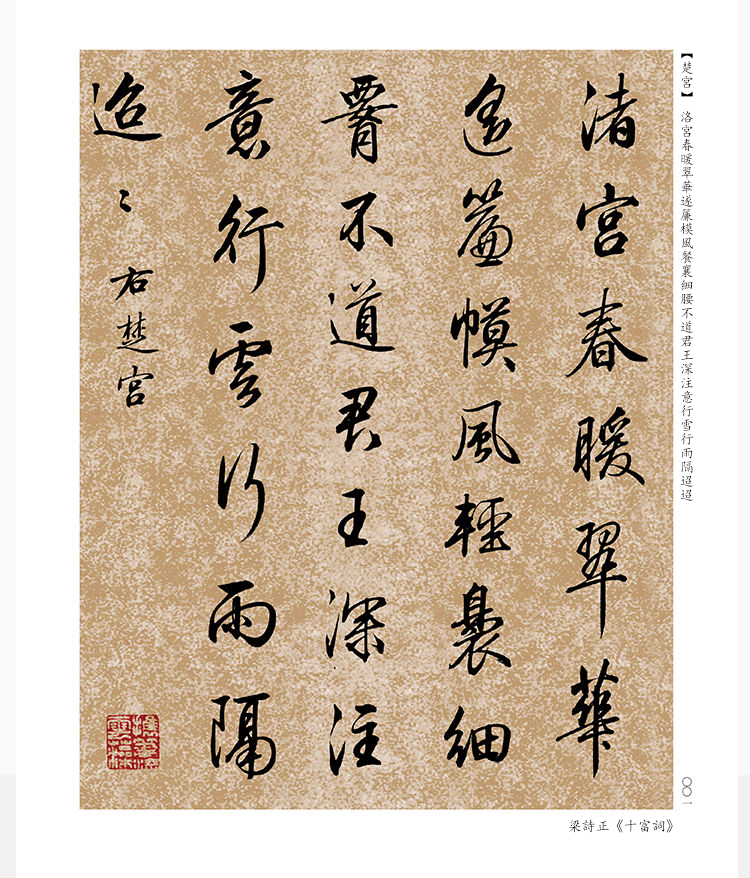 【楚宮】 洛宮春暖翠華遂廉模風餐襄細腰不道君王深注意行雪行雨隔迢迢
渚宮春暖翠華
遙簾幙風輕裊細
腰不道君王深注
意行雲行雨隔
迢〻 右楚宮
〇〇一
梁詩正《十富詞》